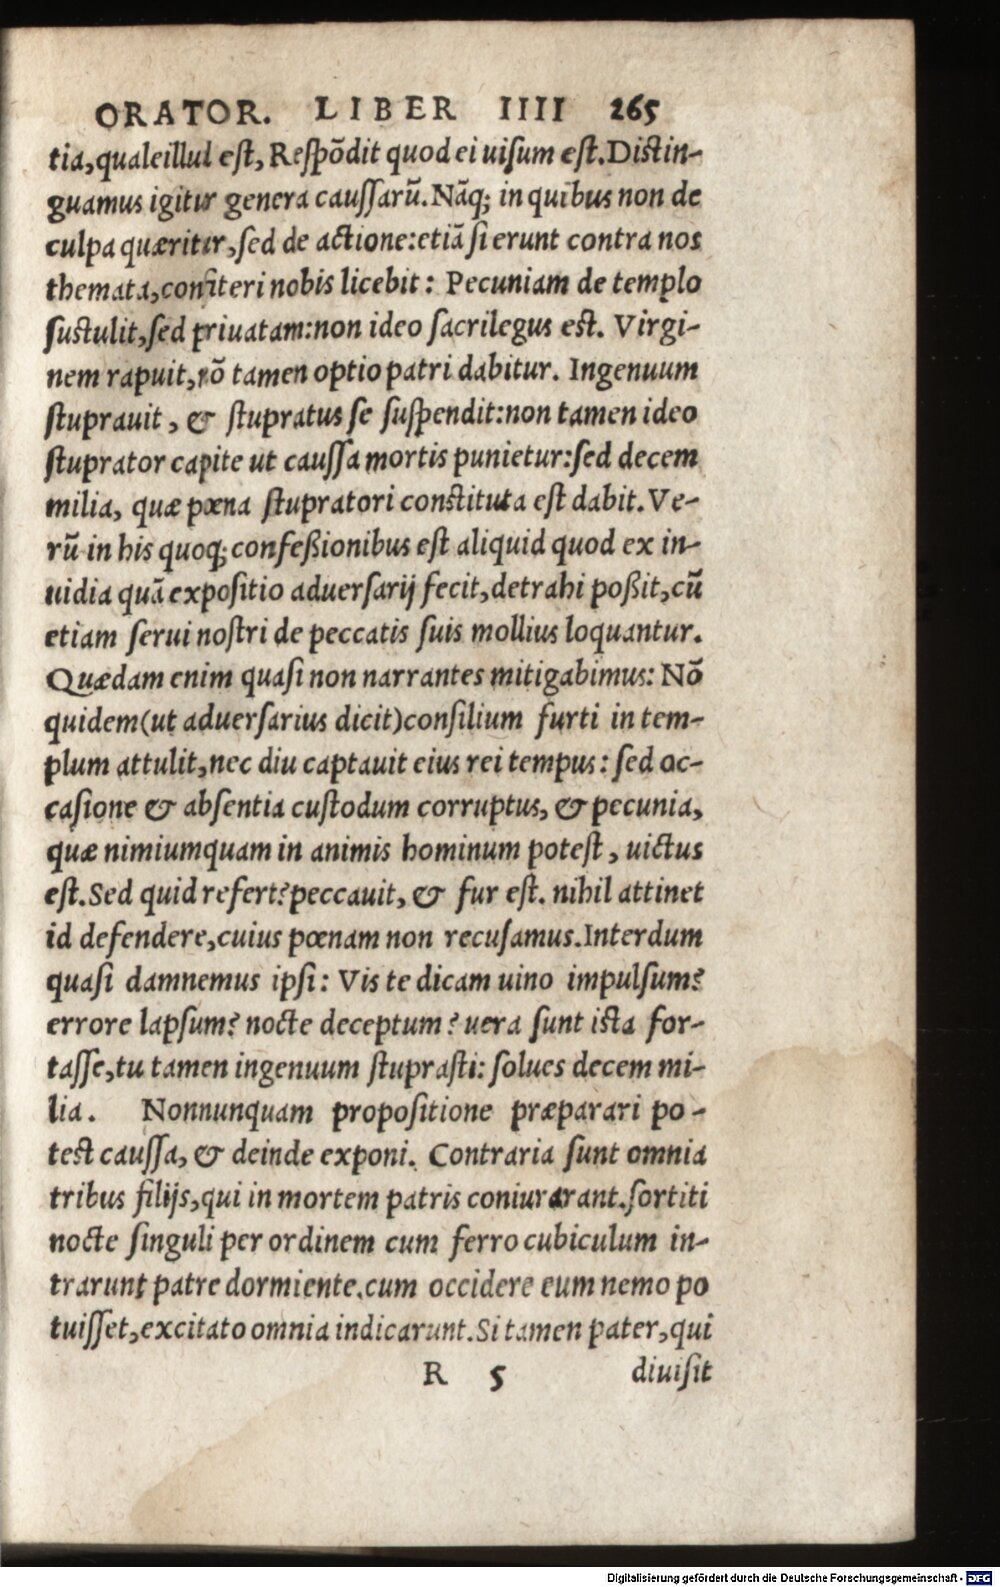 ORATOR. LIBER IIII 265
tia,qualeillul est, Respōdit quod ei uisum est.Distin-
guamus igitur genera caussarū.Nāq; in quibus non de
culpa quæritur,sed de actione:etiā si erunt contra nos
themata,confiteri nobis licebit: Pecuniam de templo
sustulit,sed priuatam:non ideo sacrilegus est. Virgi-
nem rapuit,nō tamen optio patri dabitur. Ingenuum
stuprauit, & stupratus se suspendit:non tamen ideo
stuprator capite ut caussa mortis punietur:sed decem
milia, quæ pœna stupratori constituta est dabit. Ve-
rū in his quoq; confeßionibus est aliquid quod ex in-
uidia quā expositio aduersarij fecit,detrahi poßit,cū
etiam serui nostri de peccatis suis mollius loquantur.
Quædam enim quasi non narrantes mitigabimus: Nō
quidem(ut aduersarius dicit)consilium furti in tem-
plum attulit,nec diu captauit eius rei tempus: sed oc-
casione & absentia custodum corruptus, & pecunia,
quæ nimiumquam in animis hominum potest, uictus
est.Sed quid refert?peccauit, & fur est. nihil attinet
id defendere,cuius pœnam non recusamus.Interdum
quasi damnemus ipsi: Vis te dicam uino impulsum?
errore lapsum? nocte deceptum? uera sunt ista for-
tasse,tu tamen ingenuum stuprasti: solues decem mi-
lia. Nonnunquam propositione præparari po-
test caussa, & deinde exponi. Contraria sunt omnia
tribus filijs,qui in mortem patris coniurarant.sortiti
nocte singuli per ordinem cum ferro cubiculum in-
trarunt patre dormiente.cum occidere eum nemo po
tuisset,excitato omnia indicarunt.Si tamen pater,qui
R 5 diuisit
Digitalisierung gefördert durch die Deutsche Forschungsgemeinschaft - DFG